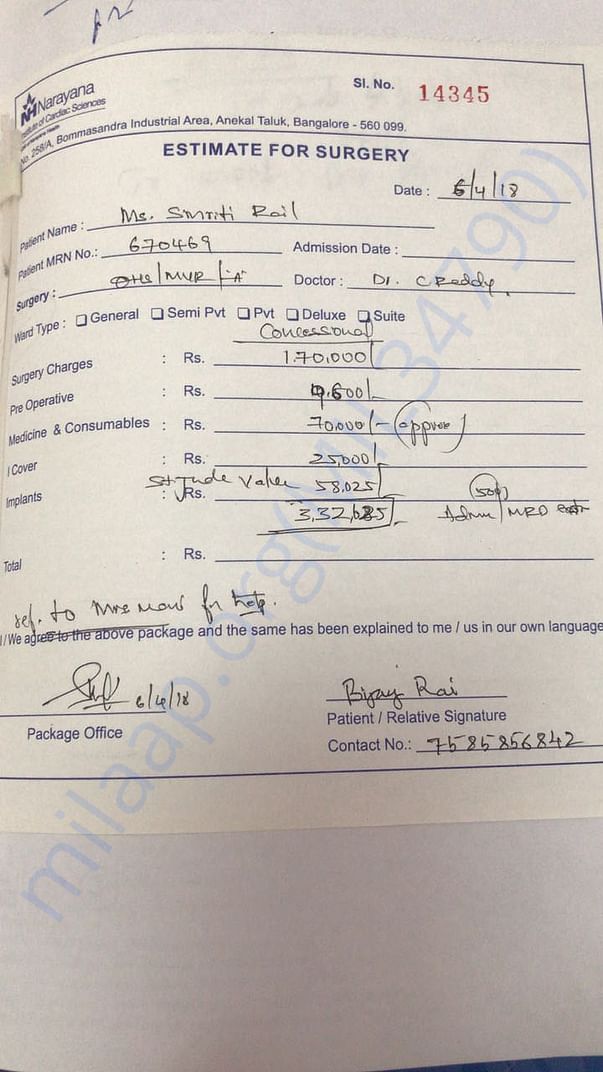 Narayana
Institute of Cardiac Sciences
Sl. No. 14345
No. 258/A, Bommasandra Industrial Area, Anekal Taluk, Bangalore - 560 099.
ESTIMATE FOR SURGERY
Date : 6/4/18
Patient Name : Ms. Smriti Rail
Patient MRN No.: 670469 Admission Date :
Surgery : OHS/MVR/'A' Doctor : Dr. C Reddy
Ward Type : General Semi Pvt Pvt Deluxe Suite
Concessonal
Surgery Charges : Rs. 1,70,000/
Pre Operative : Rs. 9,600/-
Medicine & Consumables : Rs. 70,000/- (approx)
I Cover : Rs. 25,000/
St Jude Valve
Implants : Rs. 58,025/
3,32,625/- Admn/MRD extr
Total : Rs.
ref. to Mrs for help.
I/We agree to the above package and the same has been explained to me / us in our own language
6/4/18
Bijay Rai
Package Office
Patient / Relative Signature
Contact No.: 7585856842
milaap.org(MIL34790)